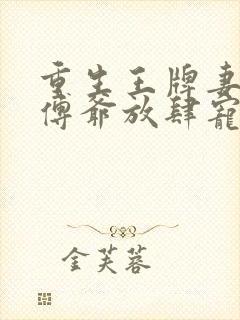 重生王牌妻
傅爺放肆寵
金芙蓉